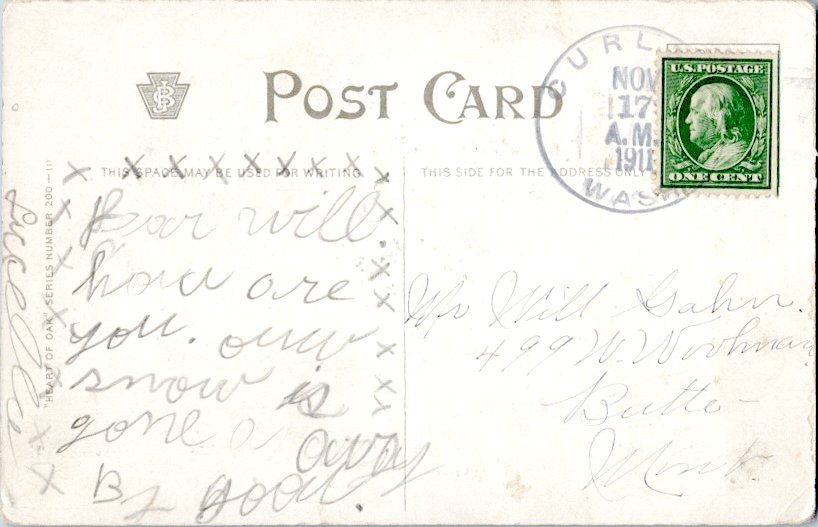 POST CARD
CURL
NOV
17
A.M.
1911
WASH.
U.S. POSTAGE
ONE CENT
THIS SPACE MAY BE USED FOR WRITING
THIS SIDE FOR THE ADDRESS ONLY
"HEART OF OAK" SERIES NUMBER 200—III
x x x x x x x x
Dear will.
how are
you. ouw
snow is
gone a away
By good.
Mr Will Gahn.
499 W. Woolman
Butte
Mont.